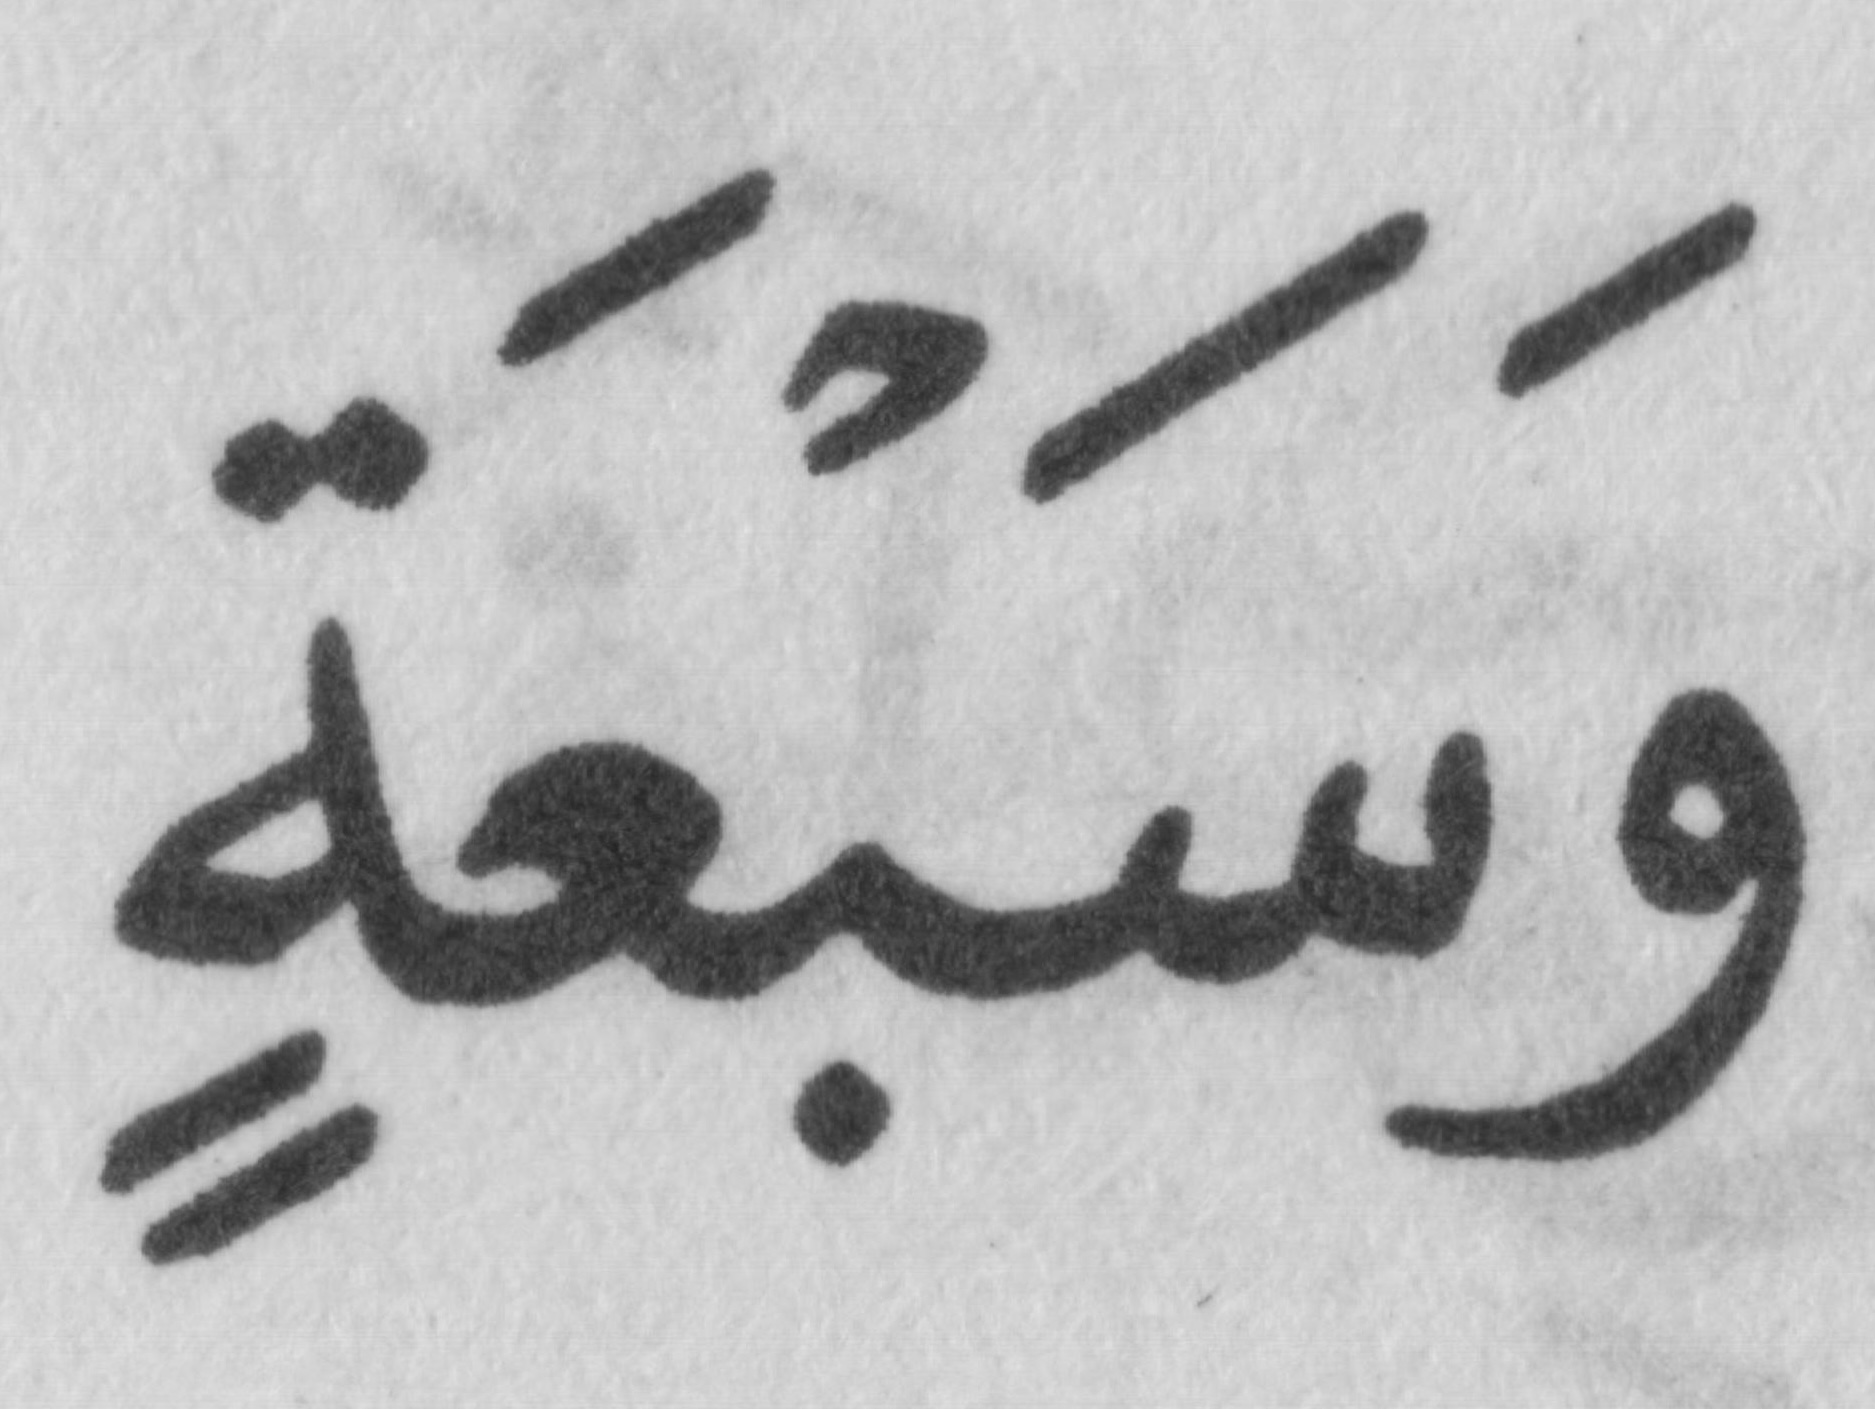 وَسَبْعَةٍ